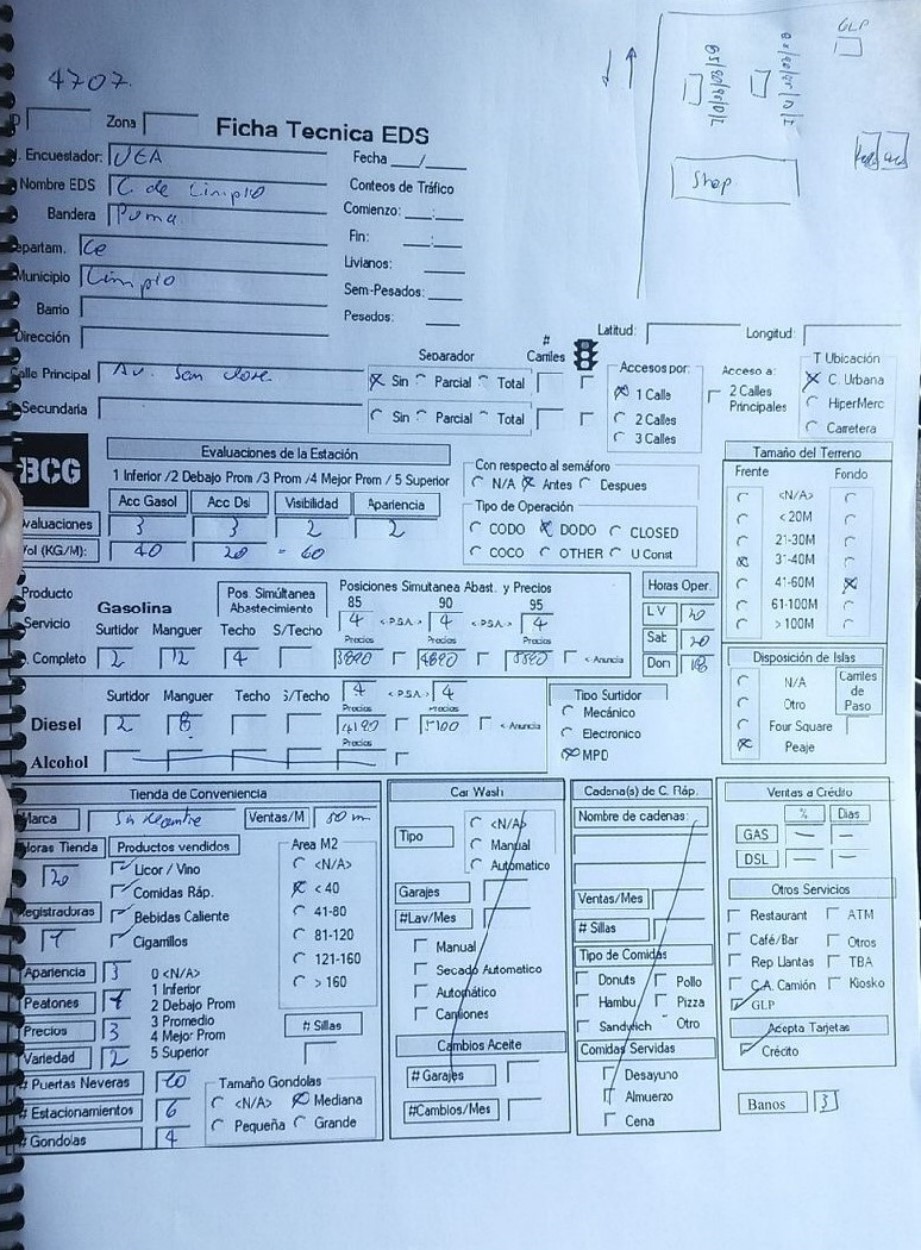 4707.
GLP
Shop
Zona
Ficha Tecnica EDS
Encuestador: UEA
Fecha __/__
Nombre EDS C. de Limpio
Conteos de Tráfico
Bandera Puma
Comienzo: __:__
Departam. Ce
Fin: __:__
Municipio Limpio
Livianos:
Sem-Pesados:
Barrio
Pesados:
Dirección
Latitud: Longitud:
Separador # Carriles
Calle Principal Av. San Jose
Sin Parcial Total
Secundaria
Sin Parcial Total
Accesos por:
1 Calle
2 Calles
3 Calles
Acceso a:
2 Calles
Principales
T Ubicación
C. Urbana
HiperMerc
Carretera
BCG
Evaluaciones de la Estación
1 Inferior /2 Debajo Prom /3 Prom /4 Mejor Prom / 5 Superior
Acc Gasol Acc Dsl Visibilidad Apariencia
Evaluaciones 3 3 2 2
Vol (KG/M): 40 20 = 60
Con respecto al semáforo
N/A Antes Despues
Tipo de Operación
CODO DODO CLOSED
COCO OTHER U Const
Tamaño del Terreno
Frente Fondo
<N/A>
<20M
21-30M
31-40M
41-60M
61-100M
>100M
Producto
Servicio
Completo
Gasolina
Pos. Simúltanea
Abastecimiento
Surtidor Manguer Techo S/Techo
2 12 4
Posiciones Simutanea Abast. y Precios
85 90 95
4 <PSA> 4 <PSA> 4
Precios Precios Precios
4890 5590 < Anuncia
Horas Oper.
LV 20
Sab 20
Dom 18
Disposición de Islas
N/A
Otro
Four Square
Peaje
Carriles
de
Paso
Diesel
Surtidor Manguer Techo S/Techo
2 8
4 <PSA> 4
Precios Precios
4190 5100 < Anuncia
Precios
Alcohol
Tipo Surtidor
Mecánico
Electronico
MPD
Tienda de Conveniencia
Marca
Ventas/M 50 m
Horas Tienda
20
Productos vendidos
Licor / Vino
Comidas Ráp.
Bebidas Caliente
Cigarrillos
Registradoras
1
Area M2
<N/A>
< 40
41-80
81-120
121-160
> 160
Apariencia 3
Peatones
Precios 3
Variedad 2
0 <N/A>
1 Inferior
2 Debajo Prom
3 Promedio
4 Mejor Prom
5 Superior
# Sillas
# Puertas Neveras 10
# Estacionamientos 6
# Gondolas 4
Tamaño Gondolas
<N/A> Mediana
Pequeña Grande
Car Wash
Tipo
<N/A>
Manual
Automatico
Garajes
#Lav/Mes
Manual
Secado Automatico
Automático
Camiones
Cambios Aceite
# Garajes
#Cambios/Mes
Cadena(s) de C. Ráp.
Nombre de cadenas:
Ventas/Mes
# Sillas
Tipo de Comidas
Donuts Pollo
Hambu Pizza
Sandwich Otro
Comidas Servidas
Desayuno
Almuerzo
Cena
Ventas a Crédito
% Dias
GAS — —
DSL — —
Otros Servicios
Restaurant ATM
Café/Bar Otros
Rep Llantas TBA
C.A. Camión Kiosko
GLP
Acepta Tarjetas
Crédito
Banos 3